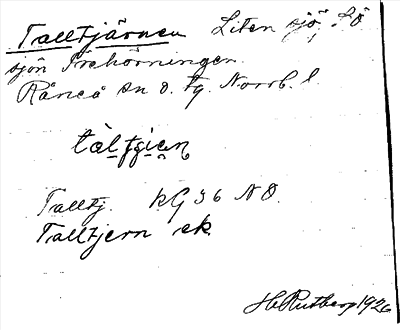 Talltjärnen Liten sjö, SÖ
sjön Trehörningen.
Råneå sn o. tg. Norrb. l.
Talltj. KG 36 NO.
Talltjern ek
H. Rutberg 1926